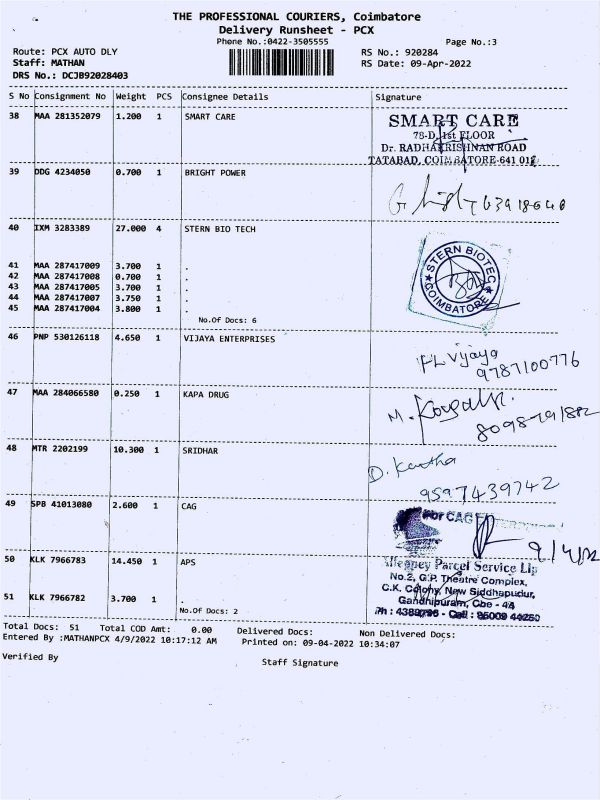 THE PROFESSIONAL COURIERS, Coimbatore
Delivery Runsheet - PCX
Phone No.:0422-3505555
Page No.:3
Route: PCX AUTO DLY
RS No.: 920284
Staff: MATHAN
RS Date: 09-Apr-2022
DRS No.: DCJB92028403
S No Consignment No Weight PCS Consignee Details Signature
38 MAA 281352079 1.200 1 SMART CARE
SMART CARE
78-D, 1st FLOOR
Dr. RADHAKRISHNAN ROAD
TATABAD, COIMBATORE-641 012
39 DDG 4234050 0.700 1 BRIGHT POWER
40 IXM 3283389 27.000 4 STERN BIO TECH
STERN BIOTEC
COIMBATORE
41 MAA 287417009 3.700 1 .
42 MAA 287417008 0.700 1 .
43 MAA 287417005 3.700 1 .
44 MAA 287417007 3.750 1 .
45 MAA 287417004 3.800 1 .
No.Of Docs: 6
46 PNP 530126118 4.650 1 VIJAYA ENTERPRISES
Vijaya
9787100776
47 MAA 284066580 0.250 1 KAPA DRUG
M.
48 MTR 2202199 10.300 1 SRIDHAR
D.
9597439742
49 SPB 41013080 2.600 1 CAG
For CAG
9/4/22
50 KLK 7966783 14.450 1 APS
Parcel Service
No.2, G.P. Theatre Complex,
C.K. Colony, New Siddhapudur,
Gandhipuram, Cbe - 44
51 KLK 7966782 3.700 1
No.Of Docs: 2
Total Docs: 51 Total COD Amt: 0.00 Delivered Docs: Non Delivered Docs:
Entered By :MATHANPCX 4/9/2022 10:17:12 AM Printed on: 09-04-2022 10:34:07
Verified By
Staff Signature